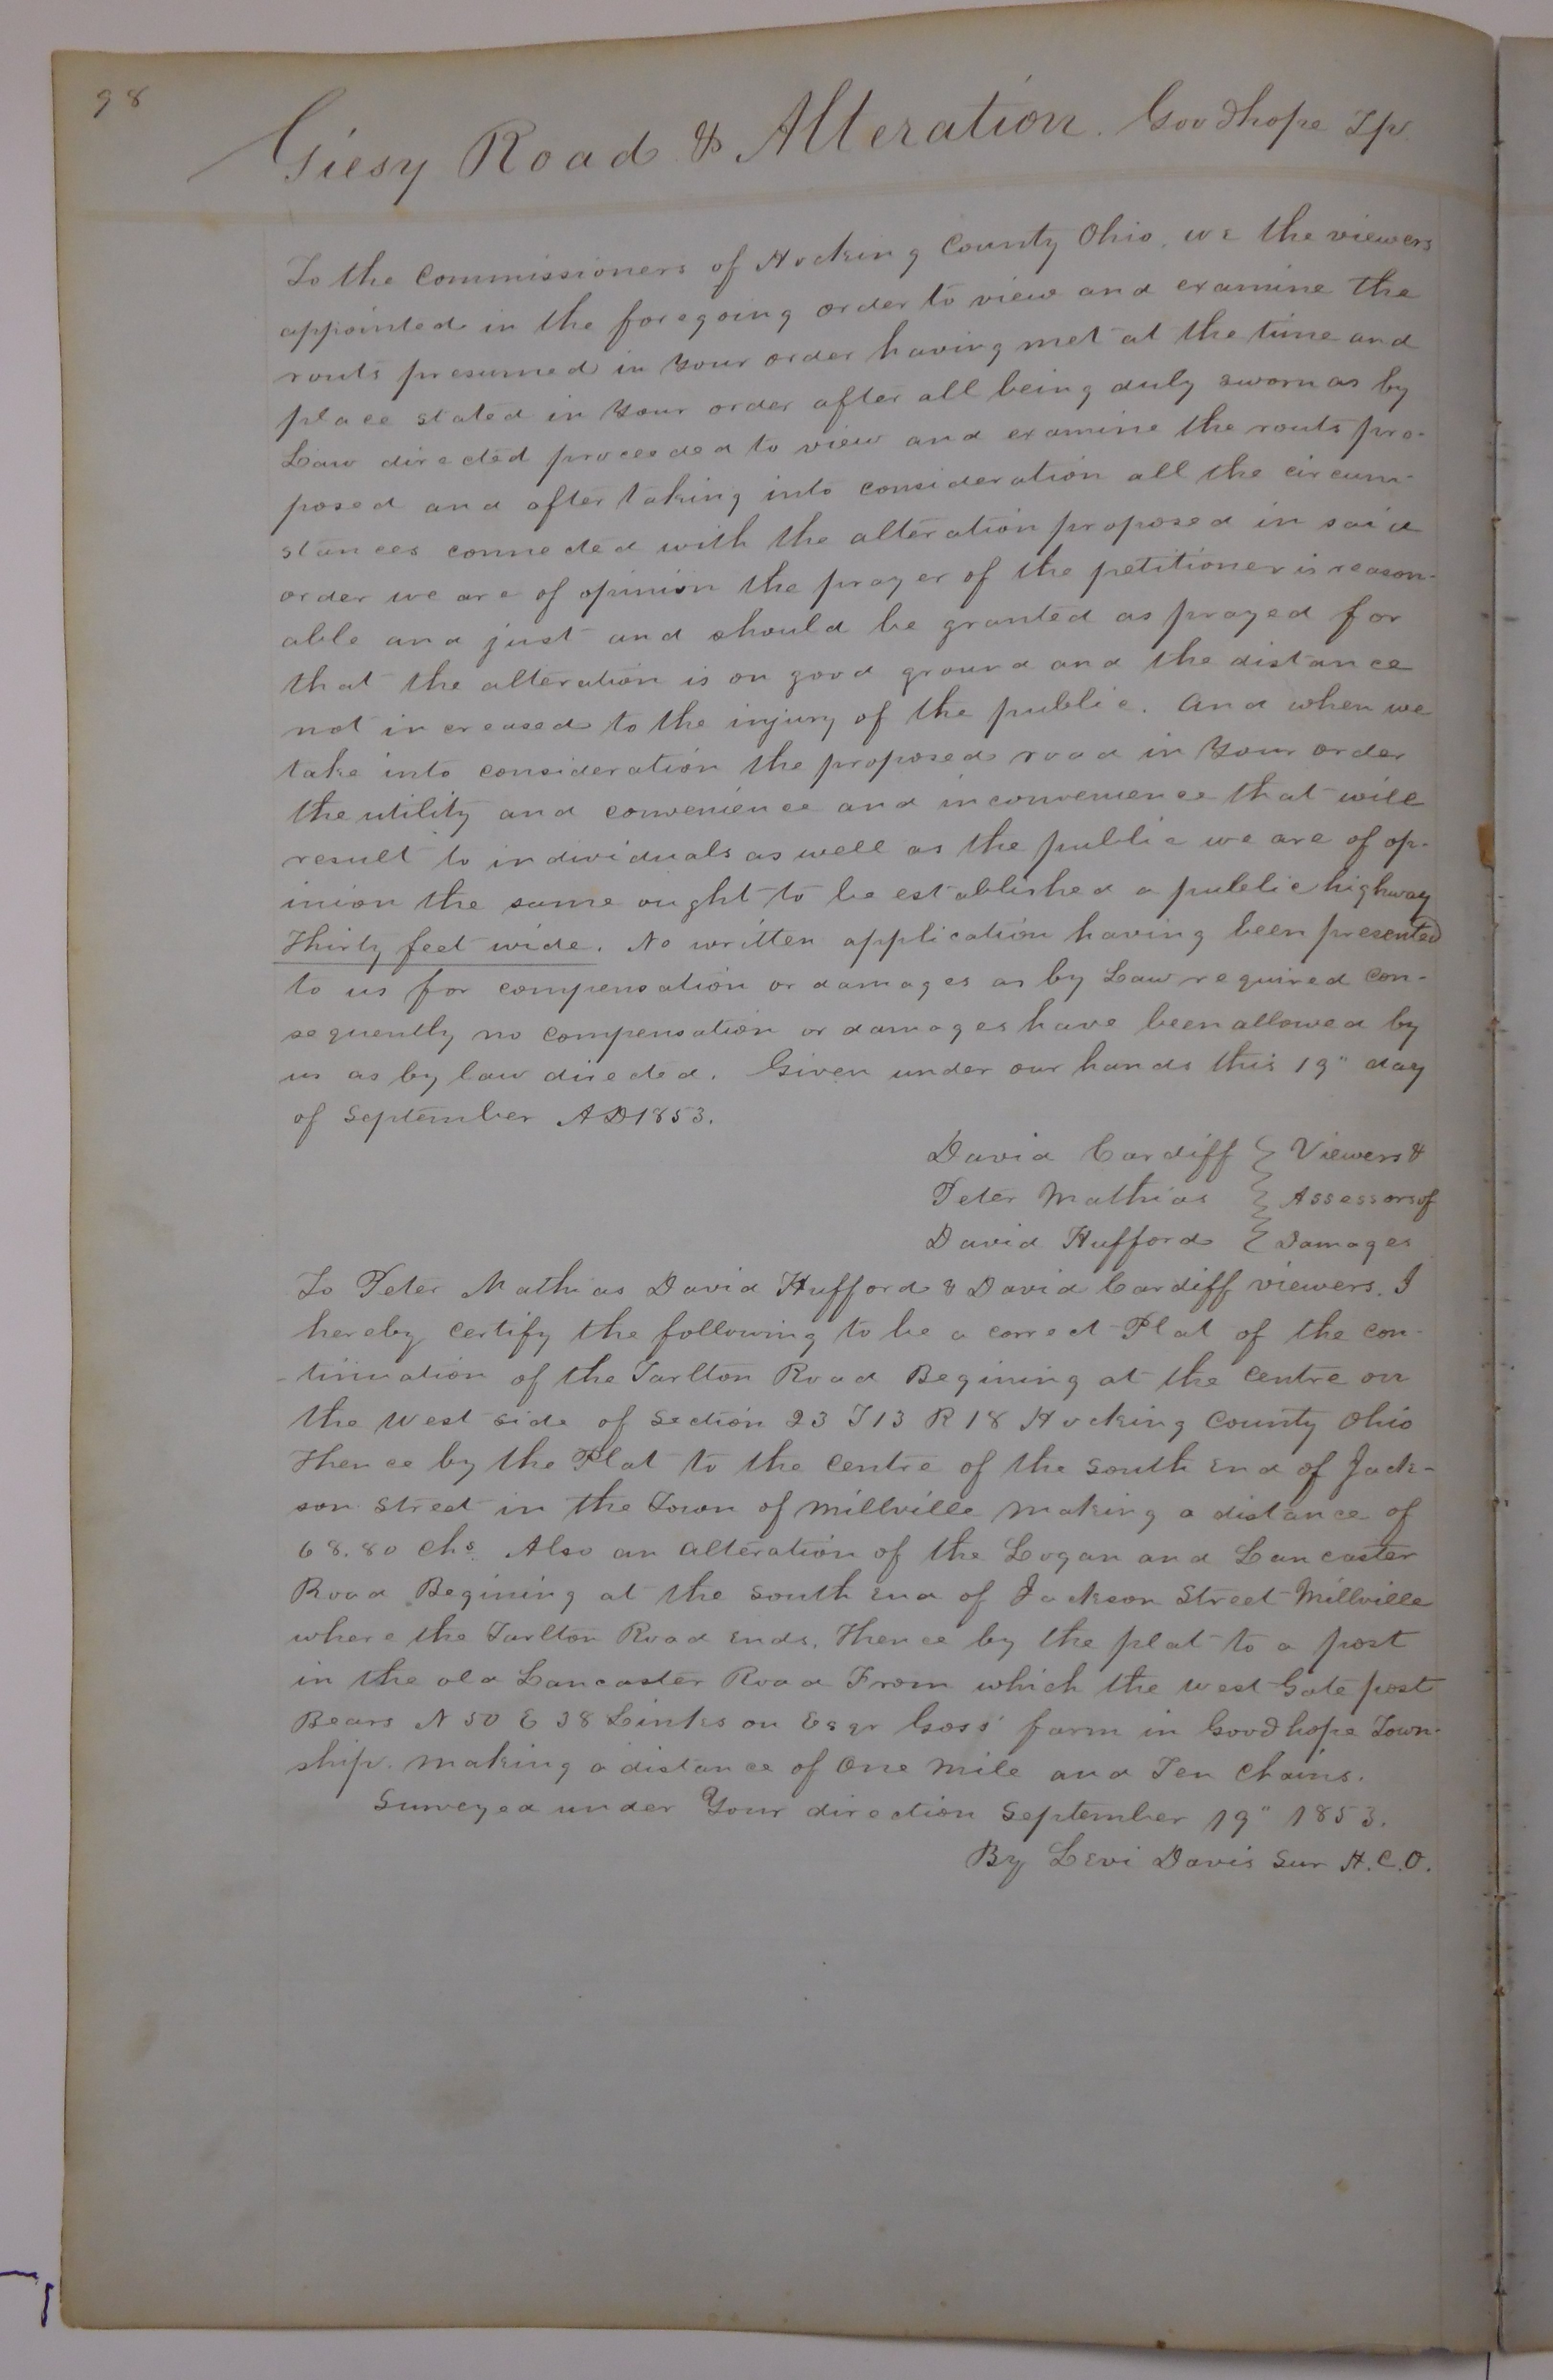 98
Giesy Road & Alteration. Goodhope Tp.
To the Commissioners of Hocking County Ohio, we the viewers
appointed in the foregoing order to view and examine the
routs presumed in Your order having met at the time and
place stated in Your order after all being duly sworn as by
Law directed proceeded to view and examine the routs pro-
posed and after taking into consideration all the circum-
stances connected with the alteration proposed in said
order we are of opinion the prayer of the petitioner is reason-
able and just and should be granted as prayed for
that the alteration is on good ground and the distance
not increased to the injury of the public. And when we
take into consideration the proposed road in Your order
the utility and convenience and inconvenience that will
result to individuals as well as the public we are of op-
inion the same ought to be established a public highway
Thirty feet wide. No written application having been presented
to us for compensation or damages as by Law required con-
sequently no compensation or damages have been allowed by
us as by law directed. Given under our hands this 19" day
of September AD 1853.
David Cardiff } Viewers &
Peter Mathias } Assessors of
David Hufford } Damages
To Peter Mathias David Hufford & David Cardiff viewers. I
hereby certify the following to be a correct Plat of the con-
-tinuation of the Tarlton Road Begining at the Centre on
the West side of Section 23 T13 R18 Hocking County Ohio
Thence by the Plat to the Centre of the South End of Jack-
son Street in the Town of Millville making a distance of
68.80 Chs. Also an alteration of the Logan and Lancaster
Road Begining at the South End of Jackson Street Millville
where the Tarlton Road Ends. Thence by the plat to a post
in the old Lancaster Road From which the West Gate post
Bears N 50 E 38 Links on Esqr Goss' farm in Goodhope Town-
ship. making a distance of One Mile and Ten Chains.
Surveyed under Your direction September 19" 1853.
By Levi Davis Sur H.C.O.